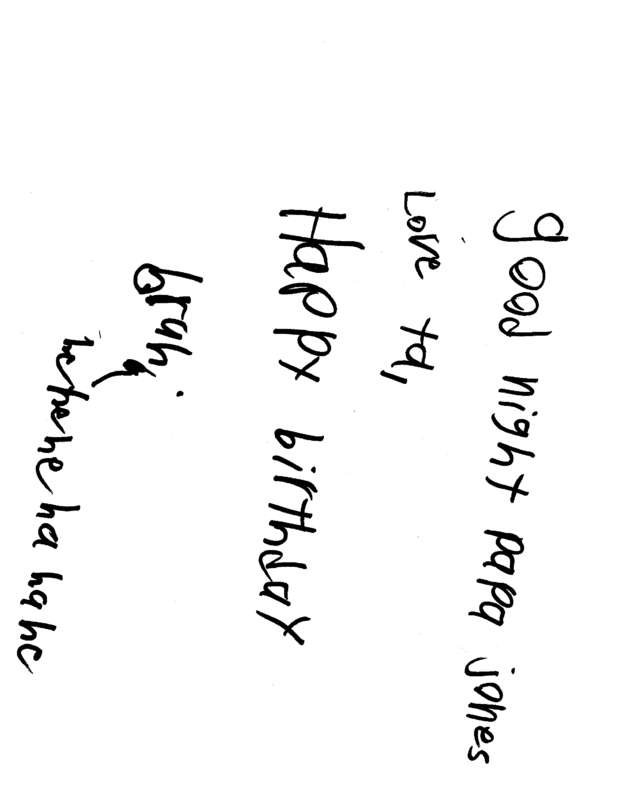 good night papa jones
Love ta,
Happy birthday
bruh,
hehehehe ha hahc